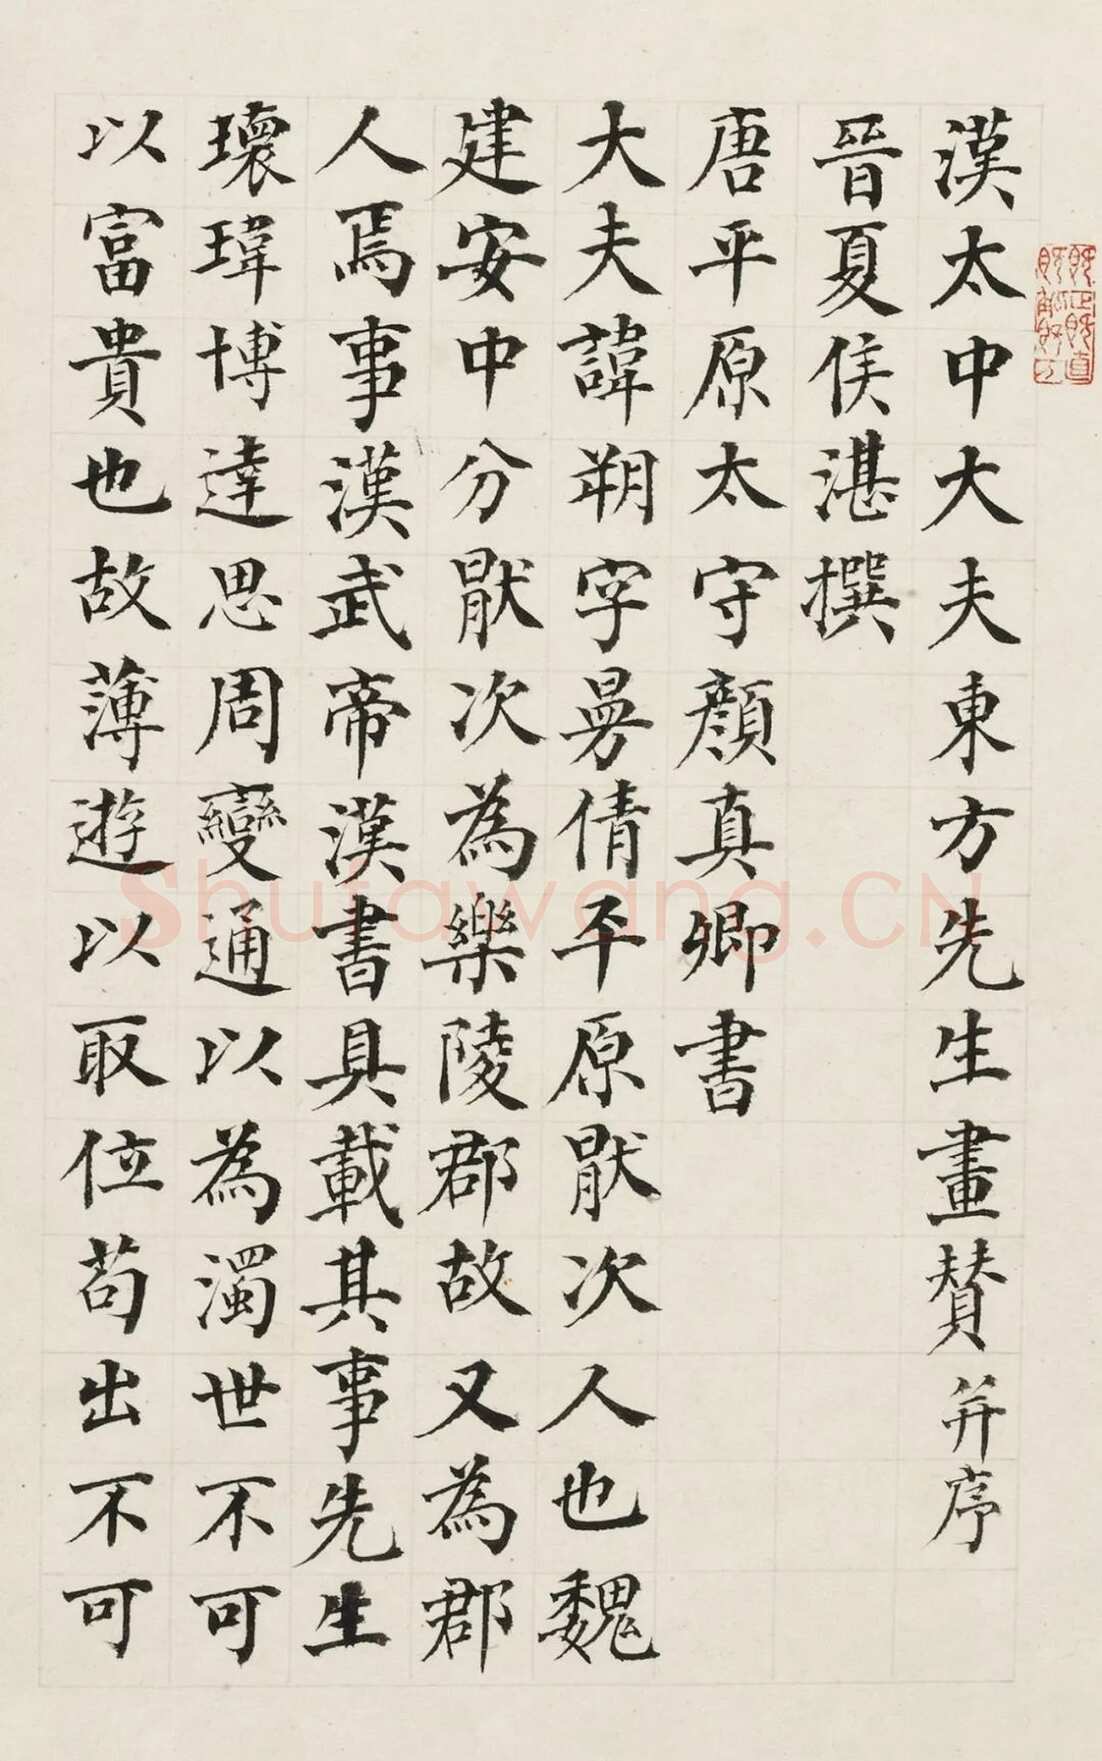 漢太中大夫東方先生畫贊并序
晉夏侯湛撰
唐平原太守顏真卿書
大夫諱朔字曼倩平原厭次人也魏
建安中分厭次為樂陵郡故又為郡
人焉事漢武帝漢書具載其事先生
瓌瑋博達思周變通以為濁世不可
以富貴也故薄遊以取位苟出不可
Shufawang.CN